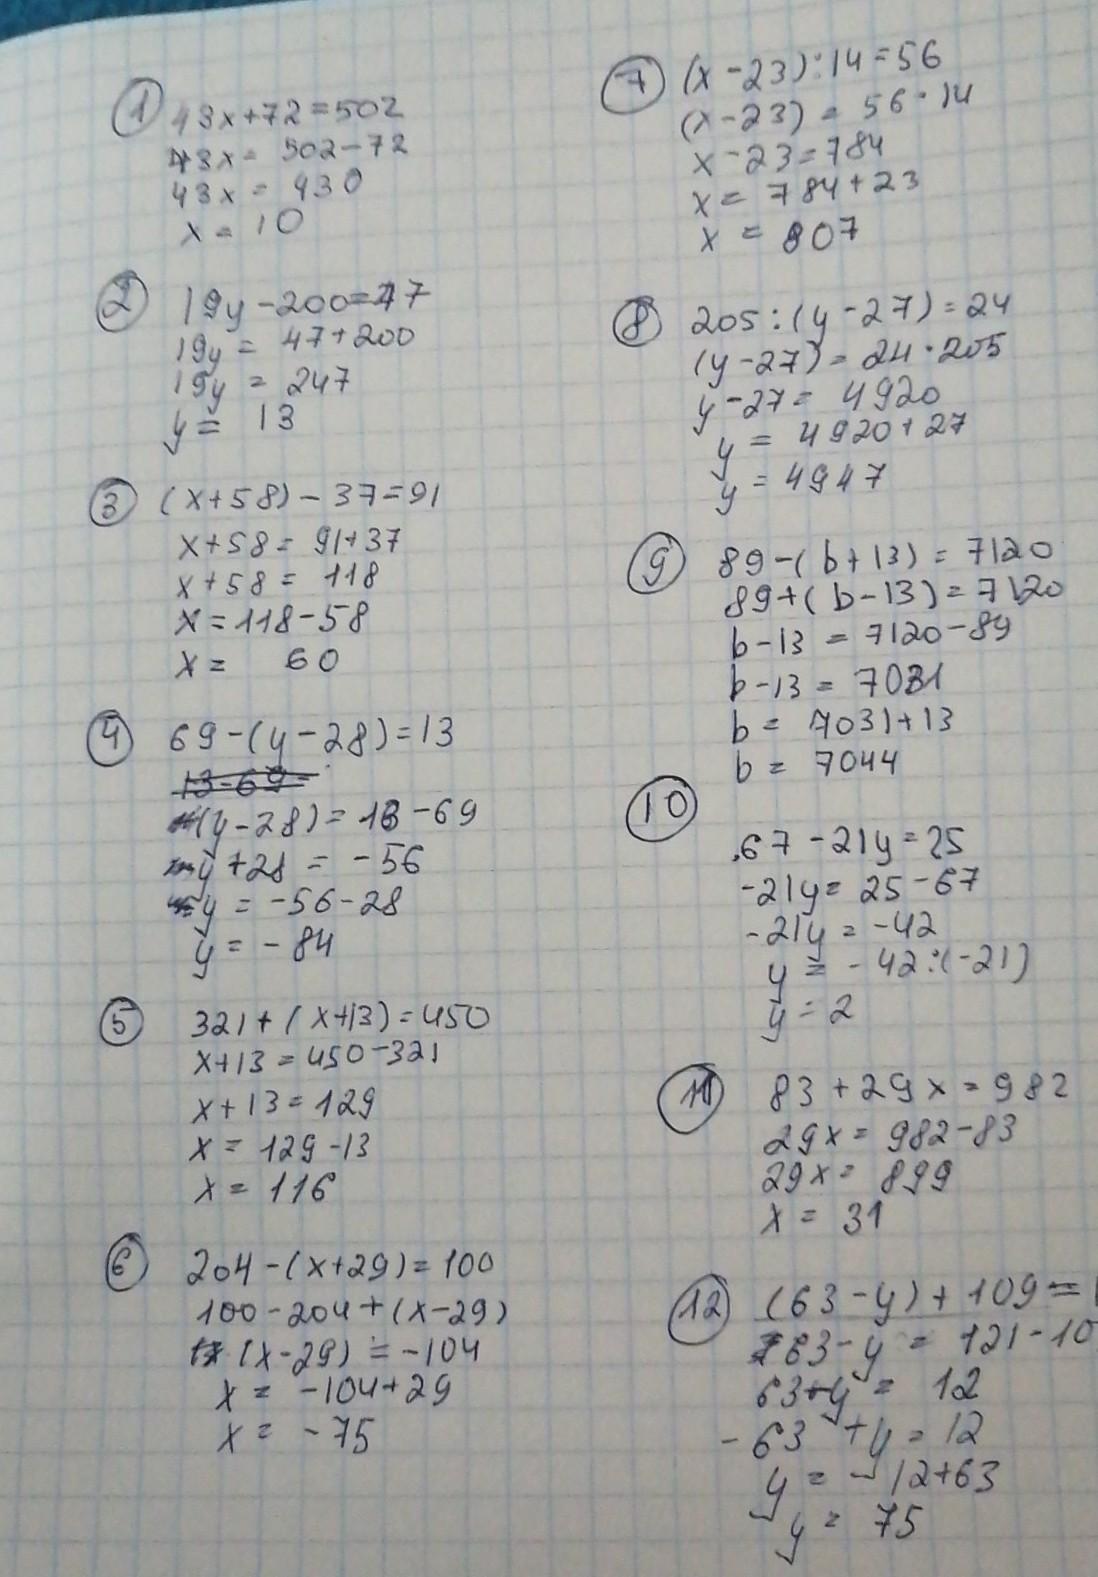 1
43x+72=502
43x= 502-72
43x= 430
x= 10
2
19y-200=47
19y= 47+200
19y= 247
y= 13
3
(x+58)-37=91
x+58= 91+37
x+58= 118
x=118-58
x= 60
4
69-(y-28)=13
13-69=
(y-28)=13-69
y+28= -56
y= -56-28
y= -84
5
321+(x+13)=450
x+13=450-321
x+13=129
x= 129-13
x= 116
6
204-(x+29)=100
100-204+(x-29)
(x-29)=-104
x= -104+29
x= -75
7
(x-23):14=56
(x-23)= 56·14
x-23=784
x= 784+23
x= 807
8
205:(y-27)=24
(y-27)=24·205
y-27= 4920
y= 4920+27
y=4947
9
89-(b+13)=7120
89+(b-13)=7120
b-13=7120-89
b-13=7031
b= 7031+13
b= 7044
10
67-21y=25
-21y=25-67
-21y=-42
y= -42:(-21)
y=2
11
83+29x=982
29x=982-83
29x=899
x= 31
12
(63-y)+109=1
63-y= 121-10
63+y= 12
-63+y=12
y= -12+63
y= 75